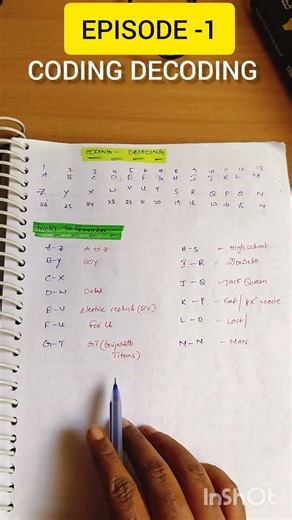 EPISODE -1
CODING DECODING
CODING - DECODING
1 2 3 4 5 6 7 8 9 10 11 12 13
A B C D E F G H I J K L M
Z Y X W V U T S R Q P O N
26 25 24 23 22 21 20 19 18 17 16 15 14
A-Z A to Z
B-Y BOY
C-X
D-W
E-V Electric vehicle (EV)
F-U For U
G-T GT (Gujarath
Titans)
H-S - High school
I-R -
J-Q - Jack Queen
K-P - Movie
L-O -
M-N - MAN
InShOt